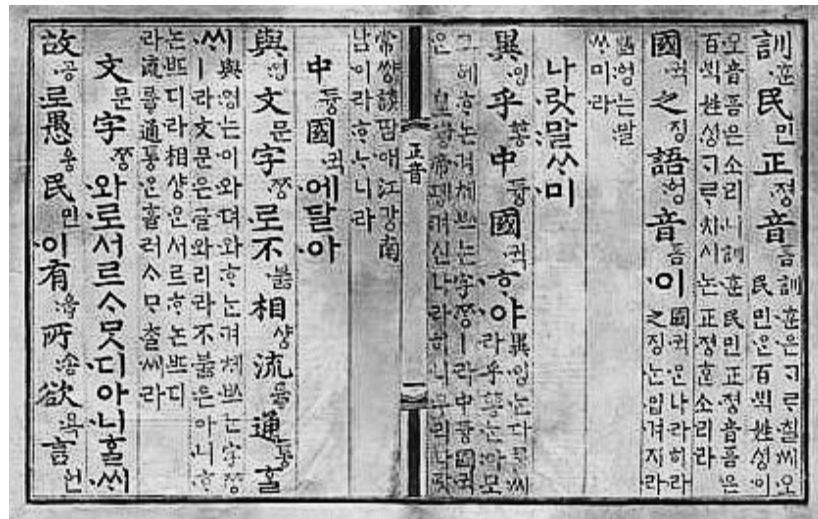 訓훈民민正져ᇰ音ᅙᅳᆷ 訓훈은ᄀᆞᄅᆞ칠씨오
民민은百ᄇᆡᆨ姓셔ᇰ이
오音ᅙᅳᆷ은소리니訓훈民민正져ᇰ音ᅙᅳᆷ은
百ᄇᆡᆨ姓셔ᇰᄀᆞᄅᆞ치시논正져ᇰᄒᆞᆫ소리라
國귁之징語ᅌᅥᆼ音ᅙᅳᆷ이 國귁은나라히라
之징는입겨지라
語ᅌᅥᆼ는말
ᄊᆞ미라
나랏말ᄊᆞ미
異잉乎ᅘᅩᆼ中듀ᇰ國귁ᄒᆞ야 異잉는다ᄅᆞᆯ씨
라乎ᅘᅩᆼ는아모
그ᅌᅦᄒᆞ논겨체ᄡᅳ는字ᄍᆞᆼㅣ라中듀ᇰ國귁
은皇ᅘᅪᇰ帝뎽겨신나라히니우리나랏
正音
一
常쌰ᇰ談땀애江가ᇰ南
남이라ᄒᆞᄂᆞ니라
中듀ᇰ國귁에달아
與영文문字ᄍᆞᆼ로不부ᇙ相샤ᇰ流류ᇢ通토ᇰᄒᆞᆯ
씨與영는이와뎌와ᄒᆞ는겨체ᄡᅳ는字ᄍᆞᆼ
ㅣ라文문은글와리라不부ᇙ은아니ᄒᆞ
논ᄠᅳ디라相샤ᇰ은서르ᄒᆞ논ᄠᅳ디
라流류ᇢ通토ᇰ은흘러ᄉᆞᄆᆞᄎᆞᆯ씨라
文문字ᄍᆞᆼ와로서르ᄉᆞᄆᆞᆺ디아니ᄒᆞᆯᄊᆡ
故공로愚ᅌᅮᆼ民민이有우ᇢ所송欲욕言언